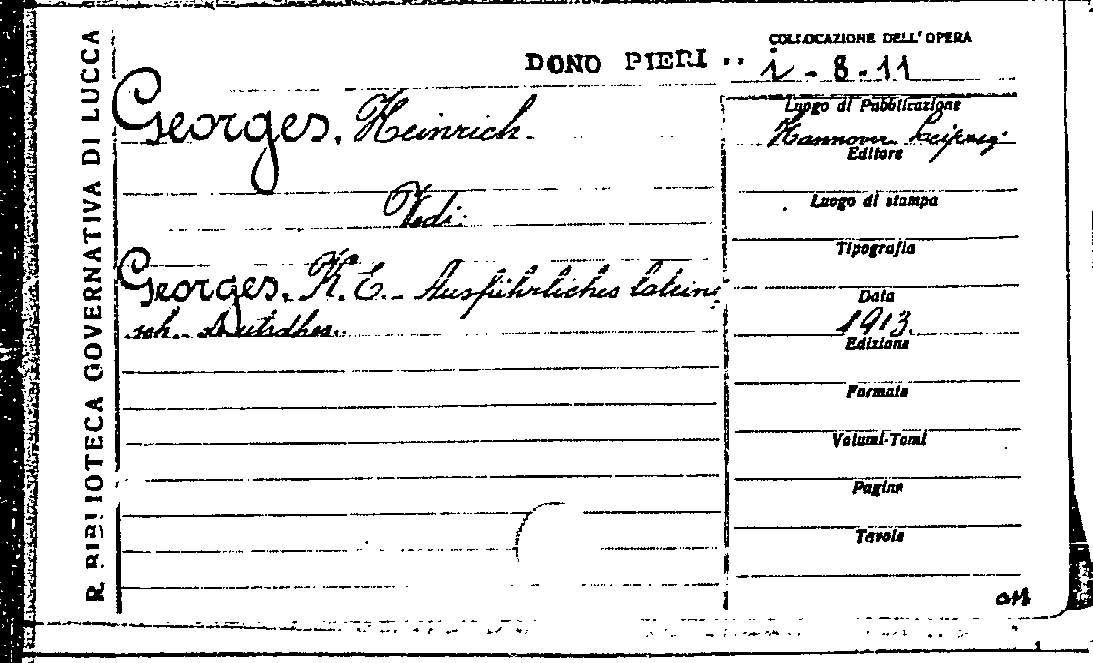 R. BIBLIOTECA GOVERNATIVA DI LUCCA
DONO PIERI
COLLOCAZIONE DELL'OPERA
i - 8 - 11
Georges, Heinrich.
Vedi:
Georges, K. E. - Ausführliches lateini
sch. Deutsches.
Luogo di Pubblicazione
Hannover. Leipzig.
Editore
Luogo di stampa
Tipografia
Data
1913.
Edizione
Formato
Volumi-Tomi
Pagine
Tavole